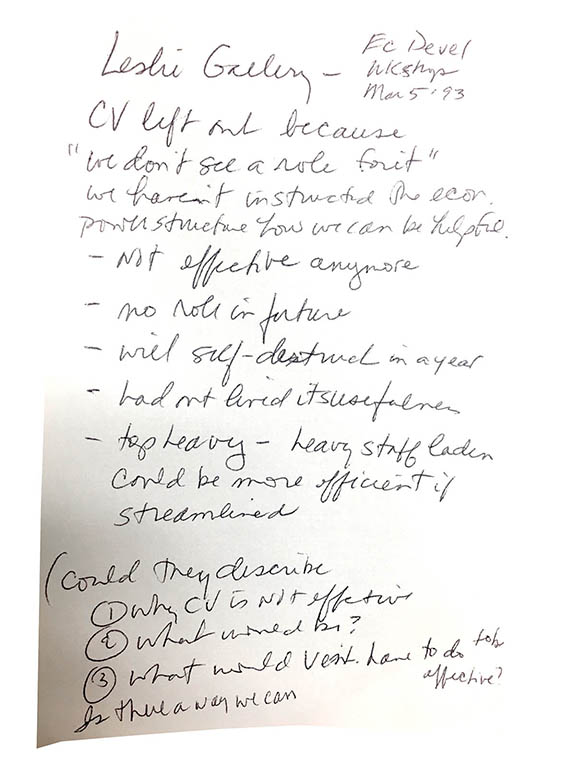 Leslie Gallery -
Ec Devel
Wkshops
Mar 5 '93
CV left out because
"we don't see a role for it"
we haven't instructed the econ.
power structure how we can be helpful.
- not effective anymore
- no role in future
- will self-destruct in a year
- had out lived its usefulness
- top heavy - heavy staff laden
could be more efficient if
streamlined
(Could they describe
① why CV is not effective
② what would be?
③ what would Vest. have to do to be
effective?
Is there a way we can